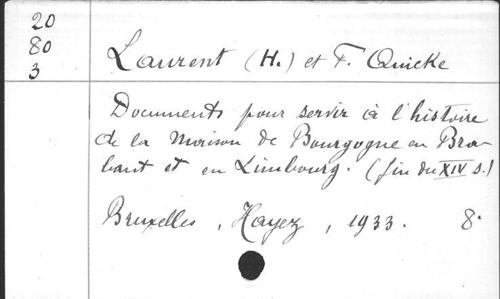 20
80
3
Laurent (H.) et F. Quicke
Documents pour servir à l'histoire
de la Maison de Bourgogne en Bra-
bant et en Limbourg. (fin du XIV s.)
Bruxelles, Hayez, 1933. 8°